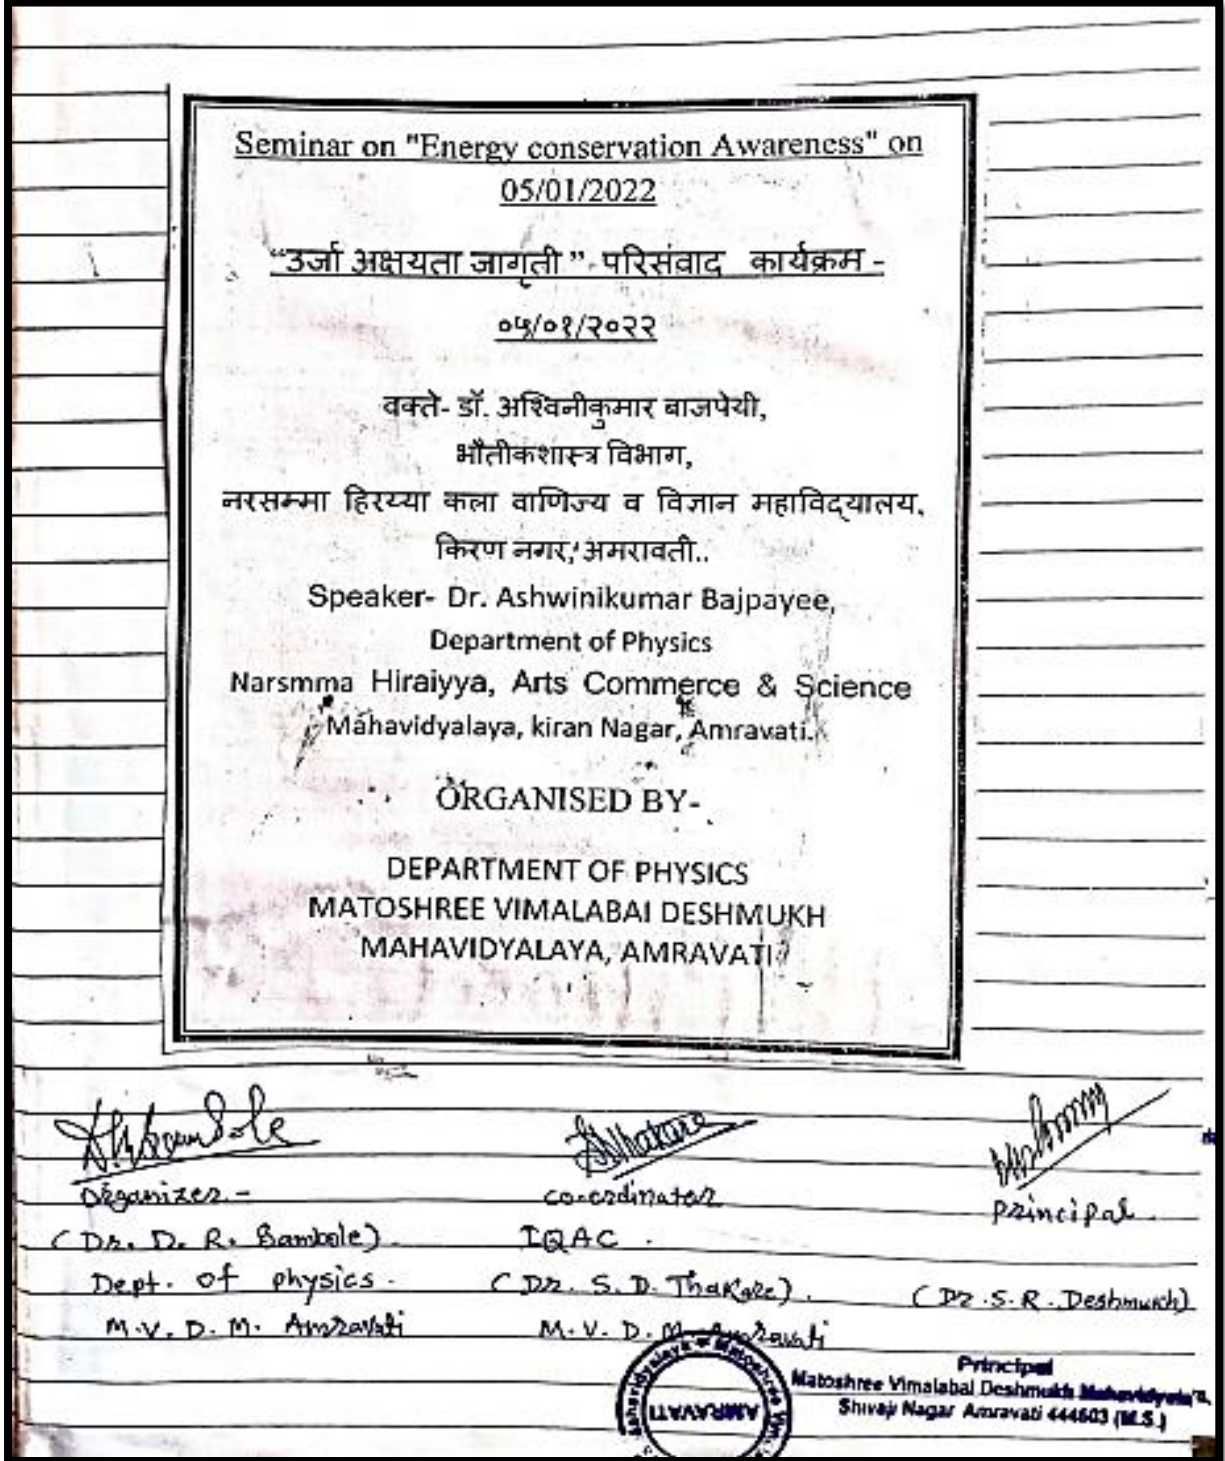 Seminar on "Energy conservation Awareness" on
05/01/2022
“उर्जा अक्षयता जागृती ”- परिसंवाद कार्यक्रम -
०५/०१/२०२२
वक्ते- डॉ. अश्विनीकुमार बाजपेयी,
भौतीकशास्त्र विभाग,
नरसम्मा हिरय्या कला वाणिज्य व विज्ञान महाविद्यालय,
किरण नगर, अमरावती..
Speaker- Dr. Ashwinikumar Bajpayee,
Department of Physics
Narsmma Hiraiyya, Arts Commerce & Science
Mahavidyalaya, kiran Nagar, Amravati.
ORGANISED BY-
DEPARTMENT OF PHYSICS
MATOSHREE VIMALABAI DESHMUKH
MAHAVIDYALAYA, AMRAVATI
Organizer - co-ordinator principal
(Dr. D. R. Bambole) IQAC .
Dept. of physics - (Dr. S. D. Thakare). (Dr. S. R. Deshmukh)
M.V. D. M. Amravati M. V. D. M. Amravati
Principal
Matoshree Vimalabai Deshmukh
Shivaji Nagar Amravati 444603 (M.S.)
AMRAVATI